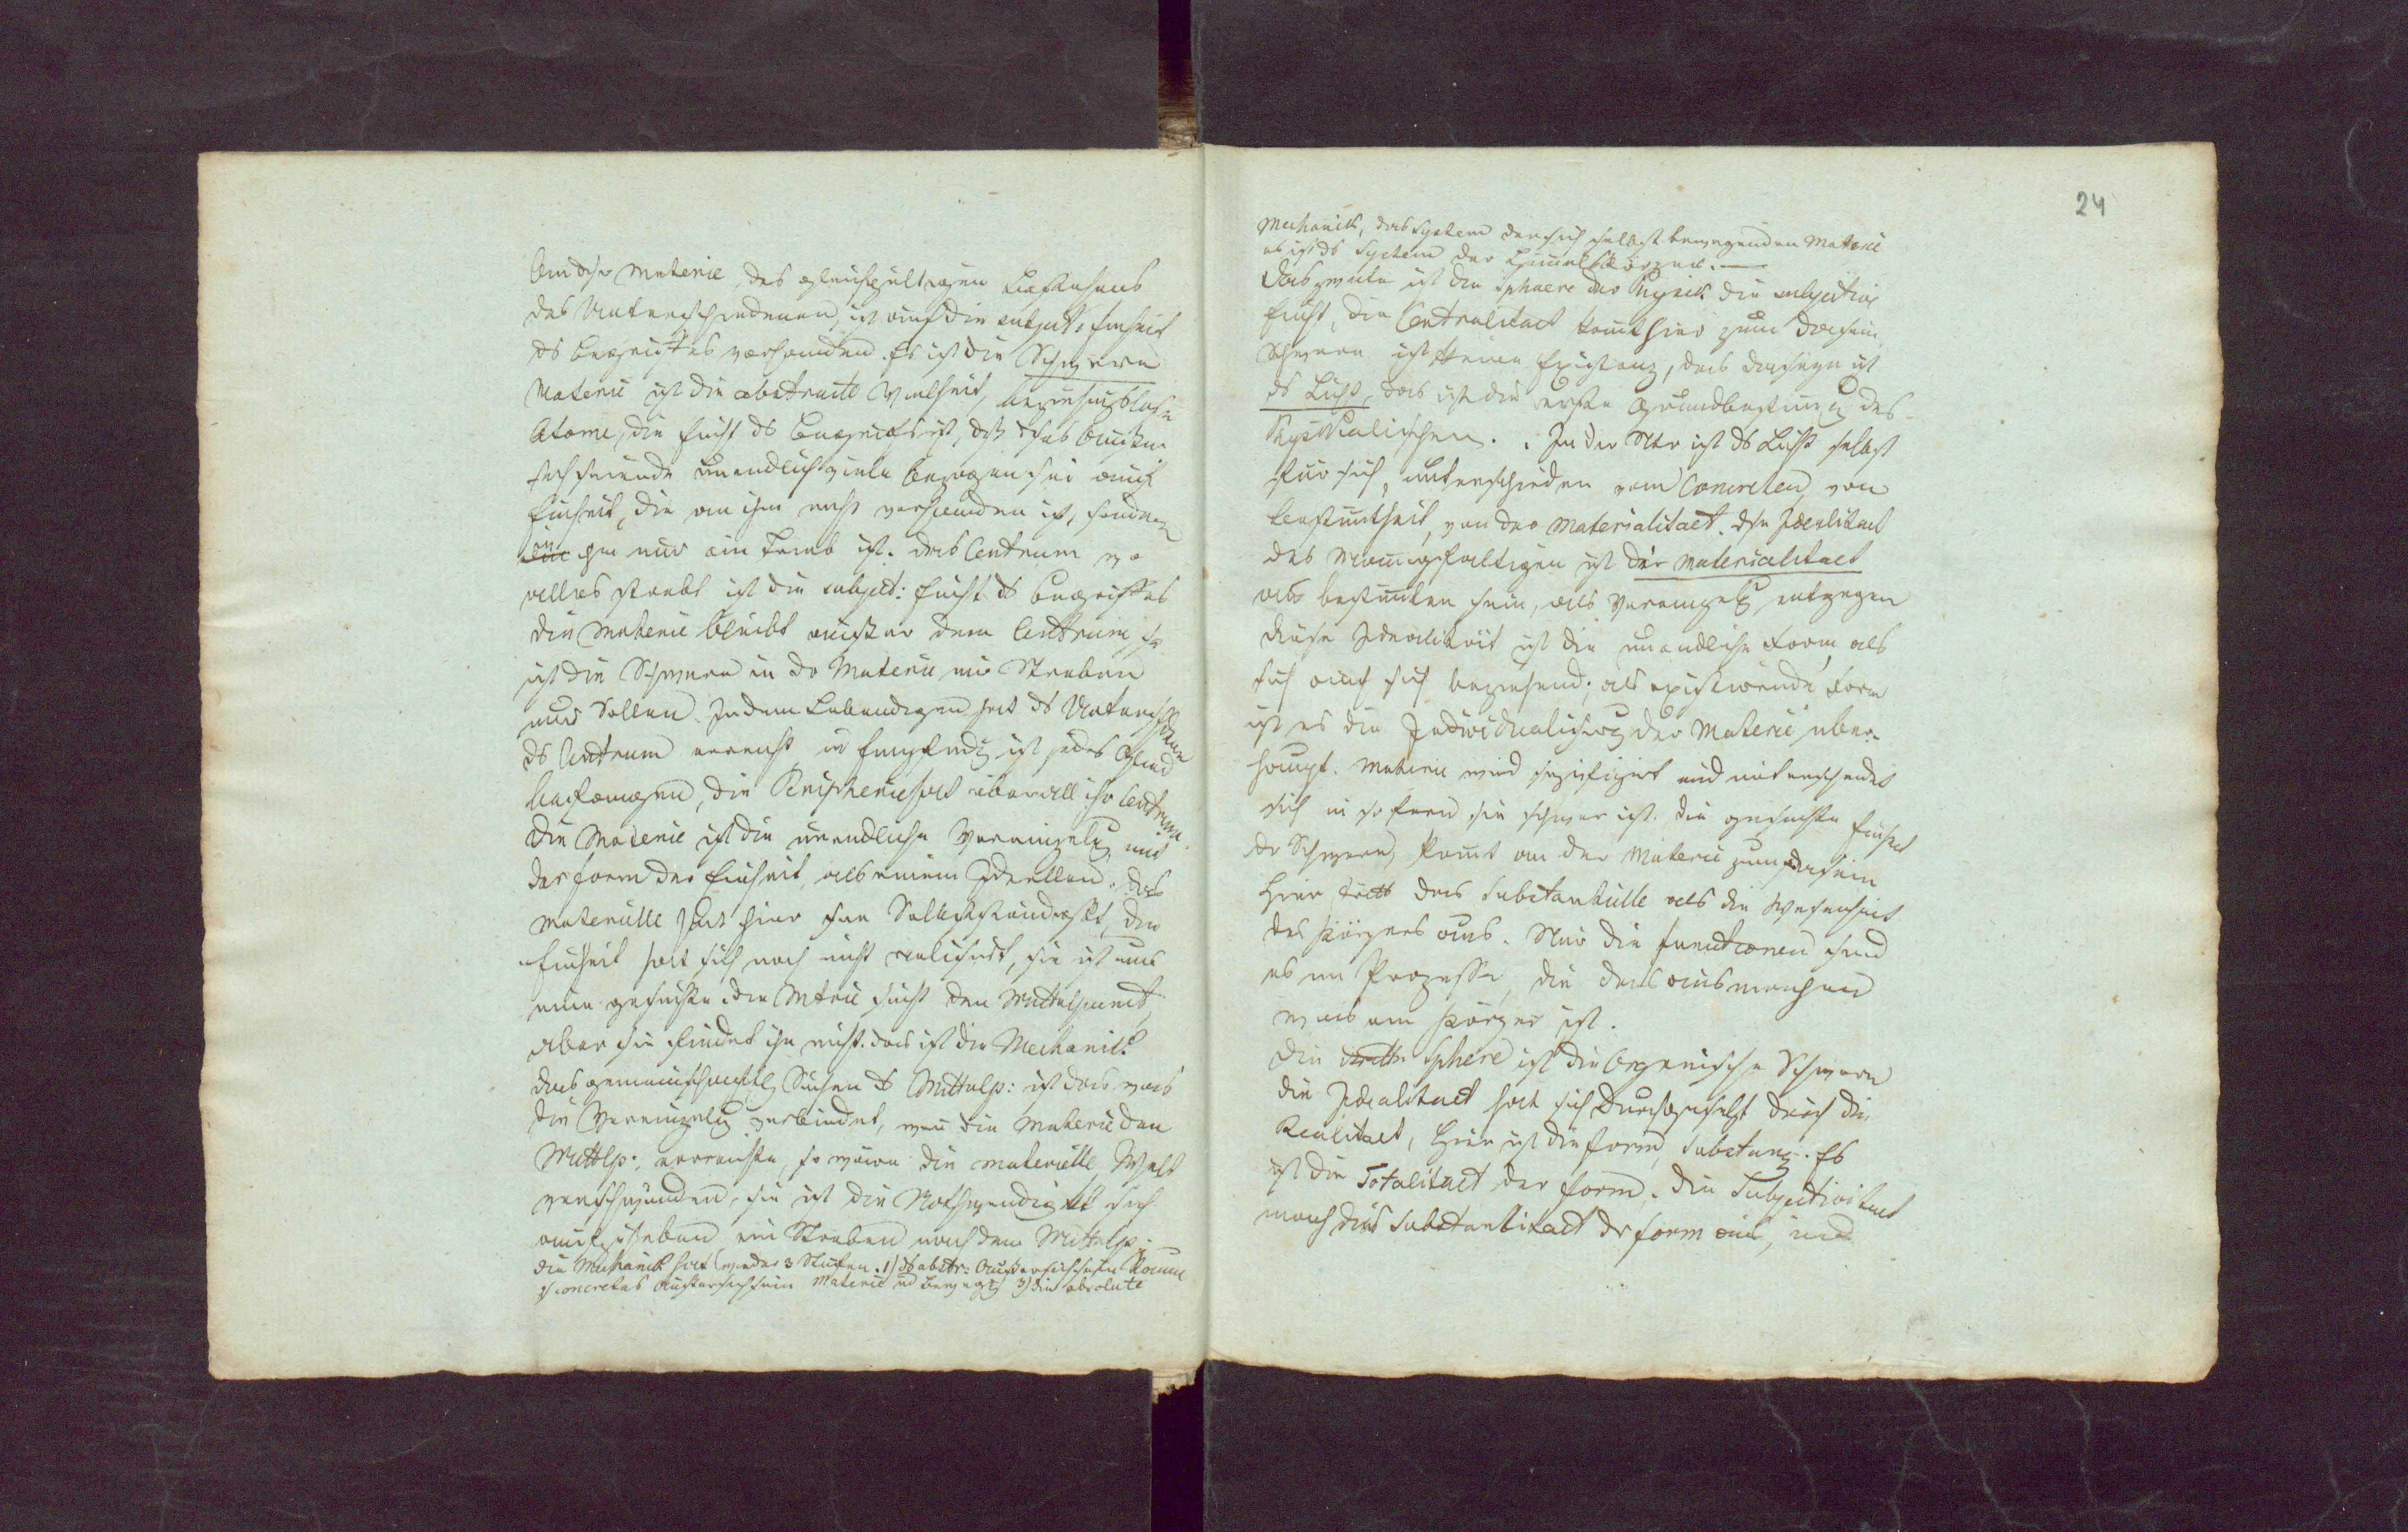 An dser Materie, des gleichgultigen Bestehens
des Unterschiedenen, ist auch die subject: Einheit
ds Begriffes vorhanden. Es ist die Schwere
Materie ist die abstracte Vielheit, beziehungslose
Atome, die Einht ds Begriffs ist, dß dses Außer
sich seiende unendlich viele bezogen sei auf
Einheit, die an ihm nicht vorhanden ist, sondern
an ihm nur ein Trieb ist. das Centrum wo
alles strebt ist die subject: Einht ds Begriffes
die Materie bleibt ausser dem Centrum so
ist die Schwere in dr Materie nur Streben
nur Sollen. In dem Lebendigen hat ds Unterschiedene
ds Centrum erreicht in Empfindg ist jedes Glied
die Peripherie hat überall ihr Centrum.
Die Materie ist die unendliche Vereinzelg mit
der Form der Einheit, als einem Ideellen. das
Materielle hat hier sne Selbstständigkt, die
Einheit hat sich noch nicht realisirt, sie ist nur
eine gesuchte. die Mterie sucht den Mittelpunct,
aber sie findet ihn nicht. das ist die Mechanik.
das gemeinschaftlg Suchen ds Mittelp: ist das was
die Vereinzelg verbindet, wen die Materie den
Mittlp: erreichte, so wäre die materielle Welt
verschwunden, sie ist die Nothwendigkt sich
aufzuheben ein Streben nach dem Mittelp:
die Mechanik hat wieder 3 Stufen. 1) ds abstr: Außersichsein Raum
2) concretes Aussersichsein Materie ud Bewegg 3) die absolute
24
Mechanik, das System der sich selbst bewegenden Materie
es ist ds System der Himmelskörper. —
Das zweite ist die Sphaere der Physik die subjective
Einht, die Centralitaet komt hier zum Dasein,
Schwere ist Existenz, das Daseyn ist
ds Licht, das ist die erste Grundbestimg des
Physikalischen. In der Ntr ist ds Licht selbst
für sich, unterschieden vom Concreten, von
Bestimtheit, von der Materialitaet. dse Idealitaet
des Mannigfaltigen ist der Materialitaet
als bestimten sein, als Vereinzelg entgegen
diese Idealität ist die unendliche Form als
sich auf sich beziehend; als existirende Form
ist es die Individualisirg der Materie über-
haupt. Materie wird spezifizirt und unterscheidet
sich in so fern sie schwer ist. die gesuchte Einheit
dr Schwere, komt an der Materie zum Dasein
Hier tritt das Substantielle als die Wesenheit
des Körpers aus. Nur die Functionen sind
es im Prozesse, die das ausmachen
was am Körper ist.
Die dritte Sphere ist die organische Schwere
die Idealitaet hat sich durchgesetzt durch die
Realitaet, hier ist die Form, Substanz. Es
ist die Totalitaet der Form, die Subjectivitaet
mach die Substantialitaet der Form aus, und